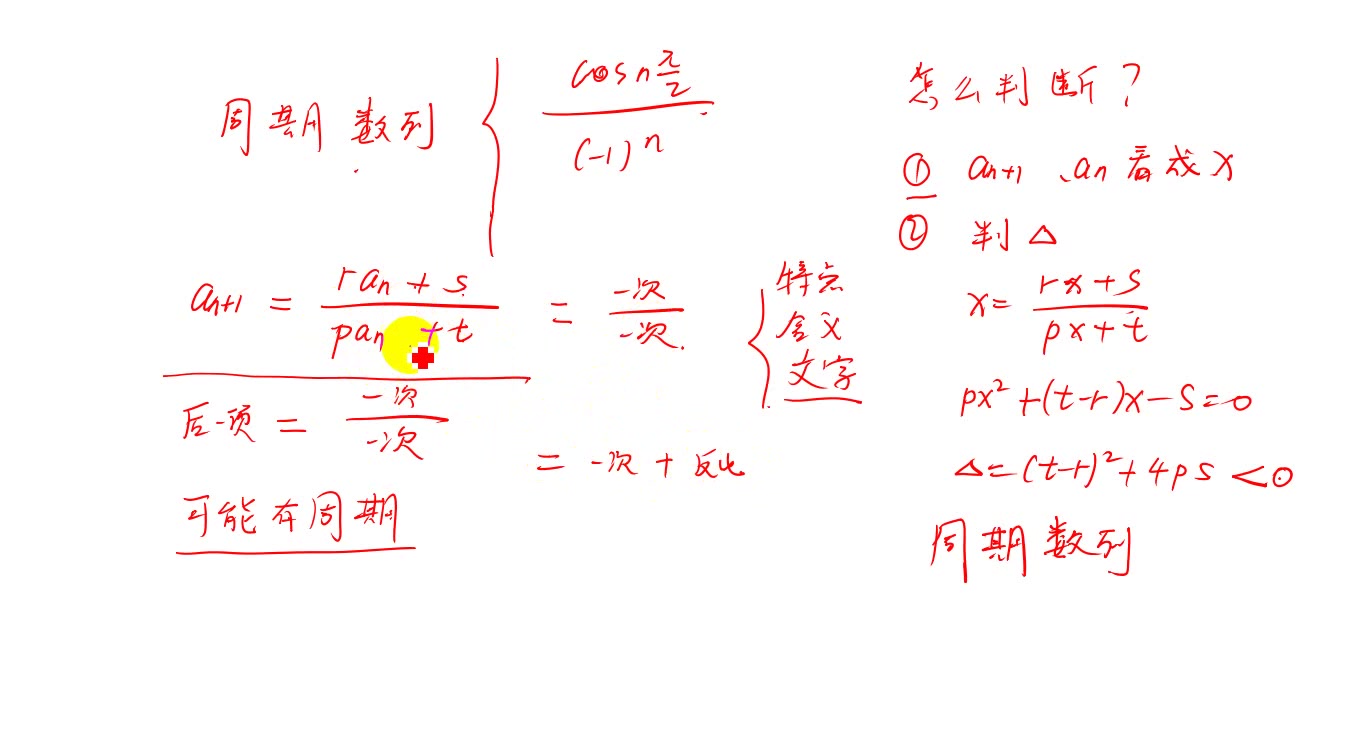 周期数列 { cosn π/2
(-1)^n
a_{n+1} = (r a_n + s)/(p a_n + t) = 一次/一次 { 特点
含义
文字
后一项 = 一次/一次
= 一次 + 反比
可能存周期
怎么判断?
① a_{n+1}、a_n 看成 x
② 判 △
x = (rx+s)/(px+t)
px²+(t-r)x-s=0
△=(t-r)²+4ps<0
周期数列